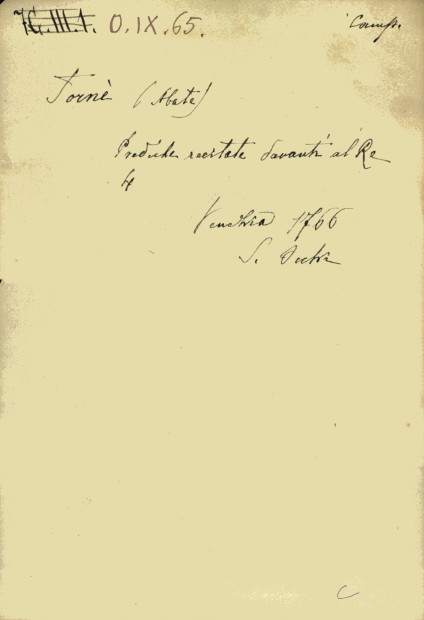 7C.III.1. O.IX.65. Comp.
Tornè (Abate)
Prediche recitate davanti al Re
4
Venezia 1766
S.
C